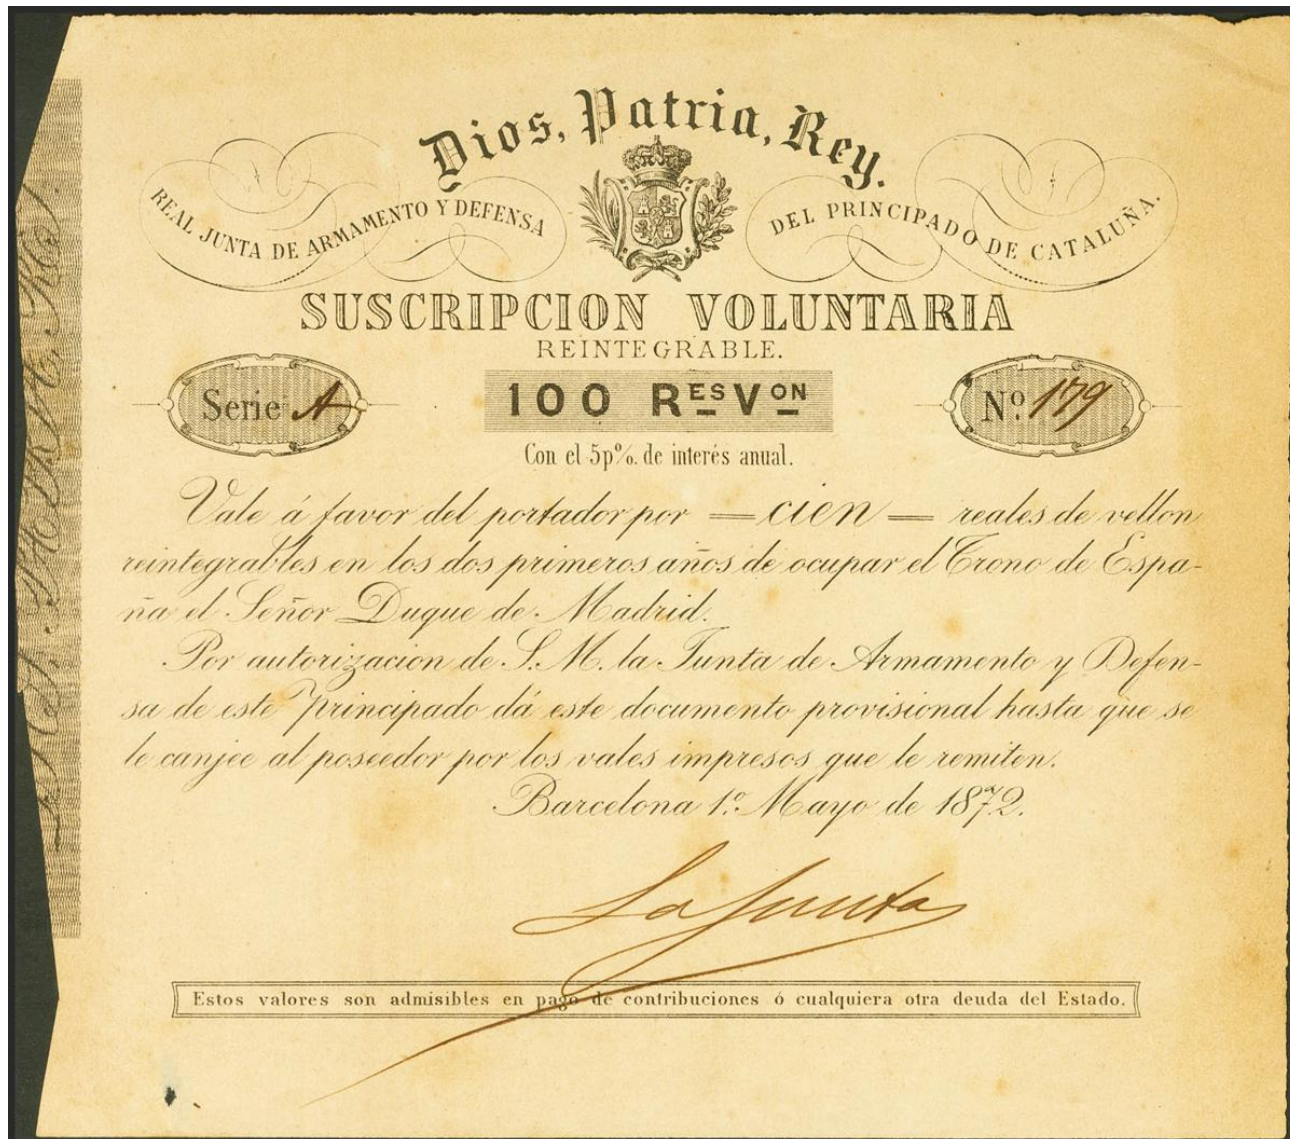 Dios, Patria, Rey.
REAL JUNTA DE ARMAMENTO Y DEFENSA
DEL PRINCIPADO DE CATALUÑA.
SUSCRIPCION VOLUNTARIA
REINTEGRABLE.
Serie A
100 RES VON
Nº 179
Con el 5p%. de interés anual.
Vale á favor del portador por = cien = reales de vellon
reintegrables en los dos primeros años de ocupar el Trono de Espa-
ña el Señor Duque de Madrid.
Por autorizacion de S. M. la Junta de Armamento y Defen-
sa de este Principado dá este documento provisional hasta que se
le canjee al poseedor por los vales impresos que le remiten.
Barcelona 1º. Mayo de 1872.
La Junta
Estos valores son admisibles en pago de contribuciones ó cualquiera otra deuda del Estado.